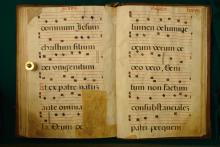 dominum Iesum
christum filium
dei unigenitum
Et ex patre natu
ante omnia
la Deum de
lumen de lumine
deum verum de
deo vero, Geni
tum non factum
consubstancialem
patri per quem